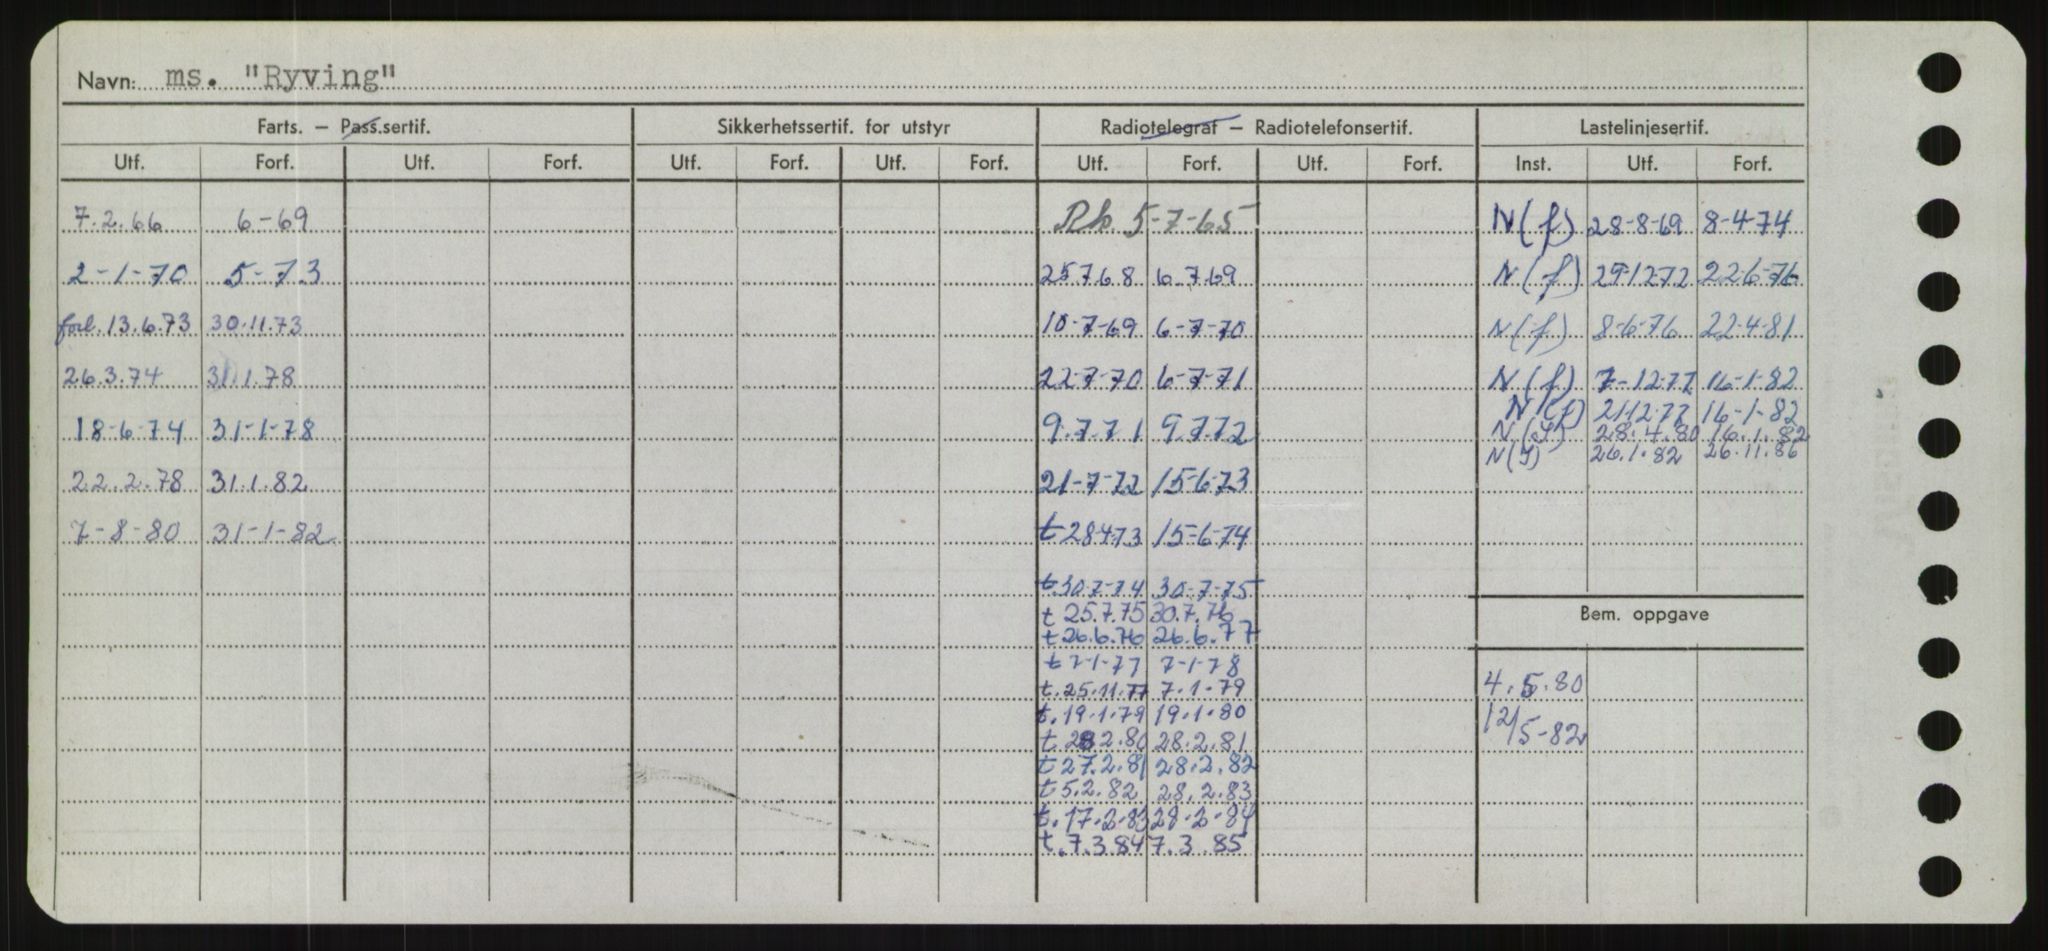 Navn: ms. "Ryving"
Farts. – Pass.sertif. Sikkerhetssertif. for utstyr Radiotelegraf – Radiotelefonsertif. Lastelinjesertif.
Utf. Forf. Utf. Forf. Utf. Forf. Utf. Forf. Utf. Forf. Utf. Forf. Inst. Utf. Forf.
7.2.66 6-69 5-7-65 N(f) 28-8-69 8-4-74
2-1-70 5-73 25768 6.7.69 N(f) 29-12-72 22-6-76
forl. 13.6.73 30.11.73 10-7-69 6-7-70 N(f) 8-6-76 22-4-81
26.3.74 31.1.78 22-7-70 6-7-71 N(f) 7-12-77 16-1-82
N(f) 21-12-77 16-1-82
18-6-74 31-1-78 9.7.71 9.7.72 N(f) 28.4.80 16.1.82
N(f) 26.1.82 26.11.86
22.2.78 31.1.82 21-7-72 15-6-73
7-8-80 31-1-82 t 28473 15-6-74
t.30-7-74 30-7-75
t 25.7.75 30.7.76
Bem. oppgave
t 26.6.76 26.6.77
t 7-1-77 7-1-78
t.25.11.77 7.1.79 4.5.80
t.19.1.79 19.1.80 12/5-82
t 282.80 28.2.81
t 27.2.81 28.2.82
t 5.2.82 28.2.83
t.17.2.83 28-2-84
t.7.3.84 7.3.85